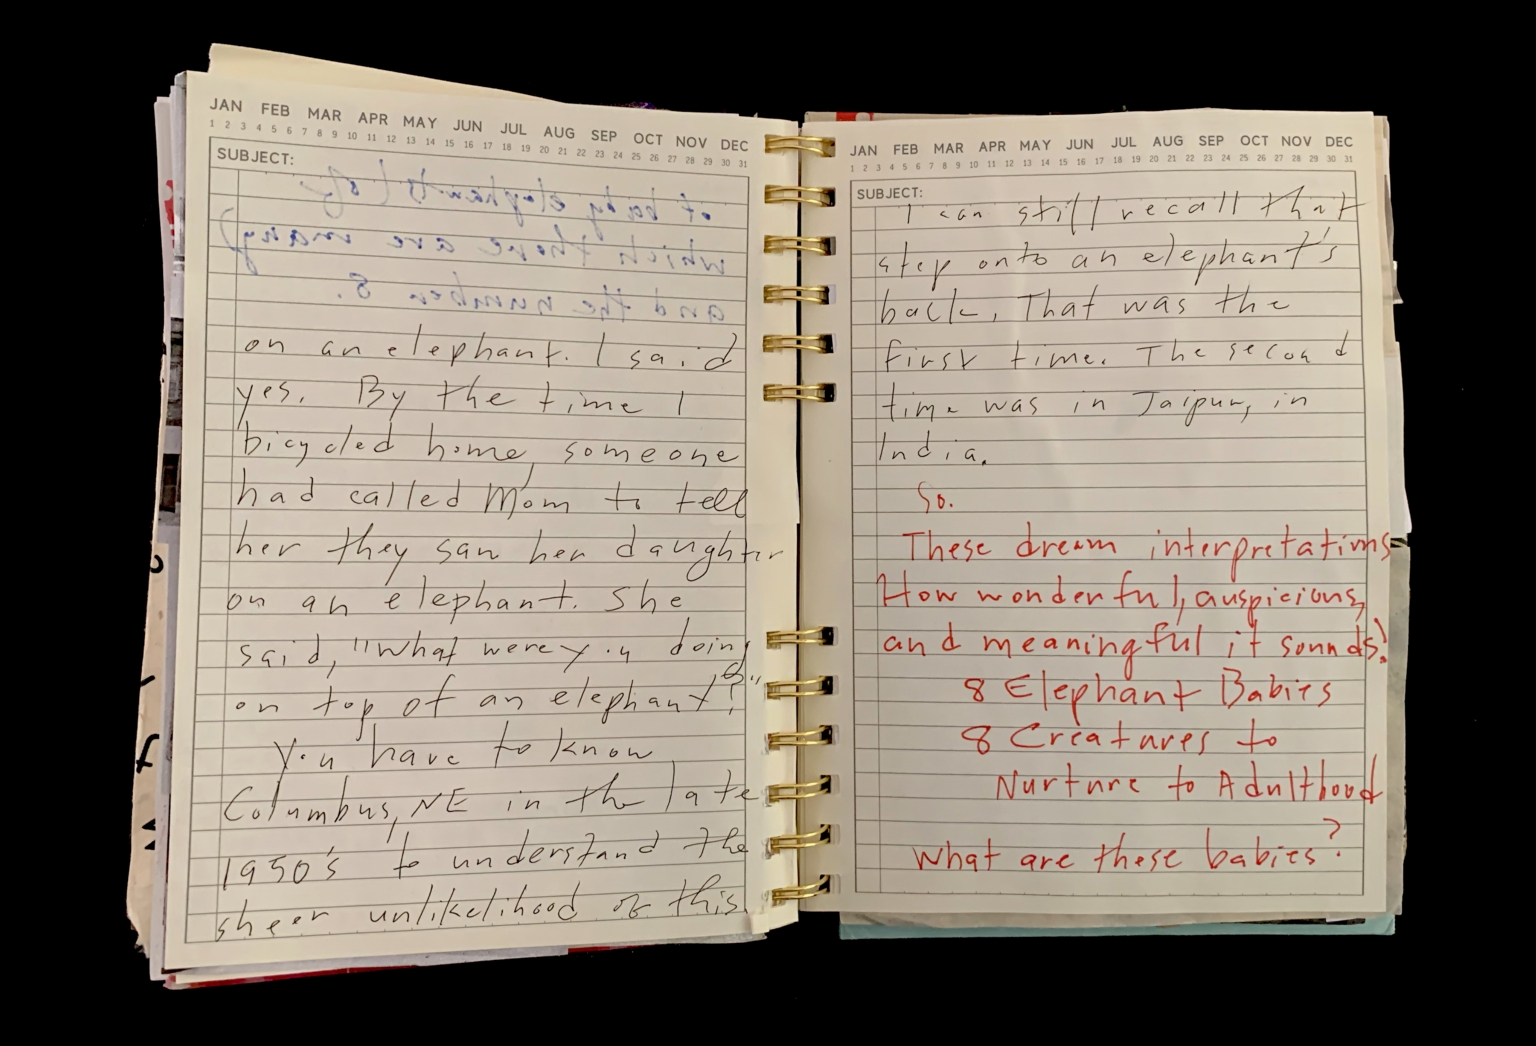 JAN FEB MAR APR MAY JUN JUL AUG SEP OCT NOV DEC
1 2 3 4 5 6 7 8 9 10 11 12 13 14 15 16 17 18 19 20 21 22 23 24 25 26 27 28 29 30 31
SUBJECT:
of baby elephants (of
which there are many)
and the number 8.
on an elephant. I said
yes. By the time I
bicycled home, someone
had called Mom to tell
her they saw her daughter
on an elephant. She
said, "What were you doing
on top of an elephant?"
You have to know
Columbus, NE in the late
1950's to understand the
sheer unlikelihood of this.
JAN FEB MAR APR MAY JUN JUL AUG SEP OCT NOV DEC
1 2 3 4 5 6 7 8 9 10 11 12 13 14 15 16 17 18 19 20 21 22 23 24 25 26 27 28 29 30 31
SUBJECT:
I can still recall that
step onto an elephant's
back. That was the
first time. The second
time was in Jaipur, in
India.
So.
These dream interpretations
How wonderful, auspicious,
and meaningful it sounds!
8 Elephant Babies
8 Creatures to
Nurture to Adulthood
What are these babies?